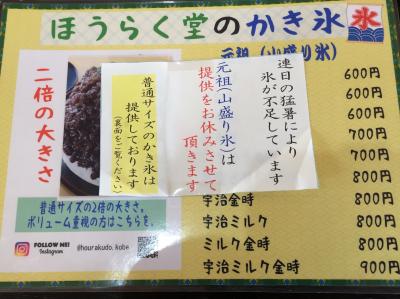 ほうらく堂のかき氷
氷
元祖（山盛り氷）
600円
600円
600円
700円
700円
800円
宇治金時 800円
宇治ミルク 800円
ミルク金時 800円
宇治ミルク金時 900円
連日の猛暑により
氷が不足しています
元祖(山盛り氷)は
提供をお休みさせて
頂きます
普通サイズのかき氷は
提供しております
(裏面をご覧ください)
二倍の大きさ
普通サイズの2倍の大きさ。
ボリューム重視の方はこちらを。
FOLLOW ME!
Instagram
@hourakudo_kobe